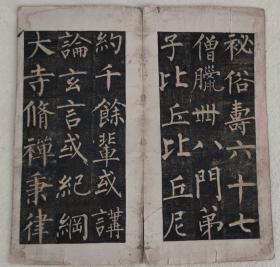 秘俗壽六十七
僧臘卌八門弟
子比丘比丘尼
約千餘輩或講
論玄言或紀綱
大寺脩禪秉律